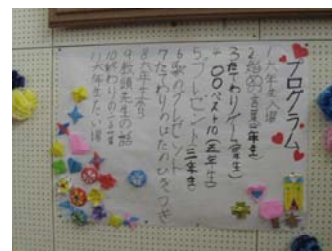 プログラム
1 六年生入場
2 始めの言葉(二年生)
3 たてわりゲーム(四年生)
4 〇〇ベスト10(五年生)
5 プレゼント(三年生)
6 歌のプレゼント
7 たてわりのはたのひきつぎ
8 六年生から
9 教頭先生の話
10 終わりの言葉
11 六年生たい場